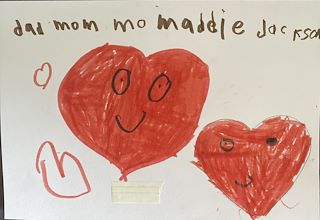 dad mom mo maddie Jackson